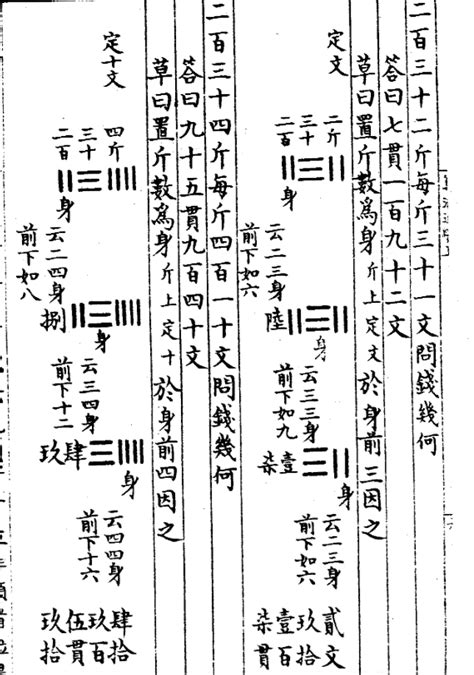 二百三十二斤每斤三十一文問錢幾何
答曰七貫一百九十二文
草曰置斤數爲身斤上定文於身前三因之
定文
二斤
三十
二百
身
云二三身
前下如六
陸
身
云三三身
前下如九
壹
柒
身
云二三身
前下如六
貳文
玖拾
壹百
柒貫
二百三十四斤每斤四百一十文問錢幾何
答曰九十五貫九百四十文
草曰置斤數爲身斤上定十於身前四因之
定十文
四斤
三十
二百
身
云二四身
前下如八
捌
身
云三四身
前下十二
肆
玖
身
云四四身
前下十六
肆拾
玖百
伍貫
玖拾